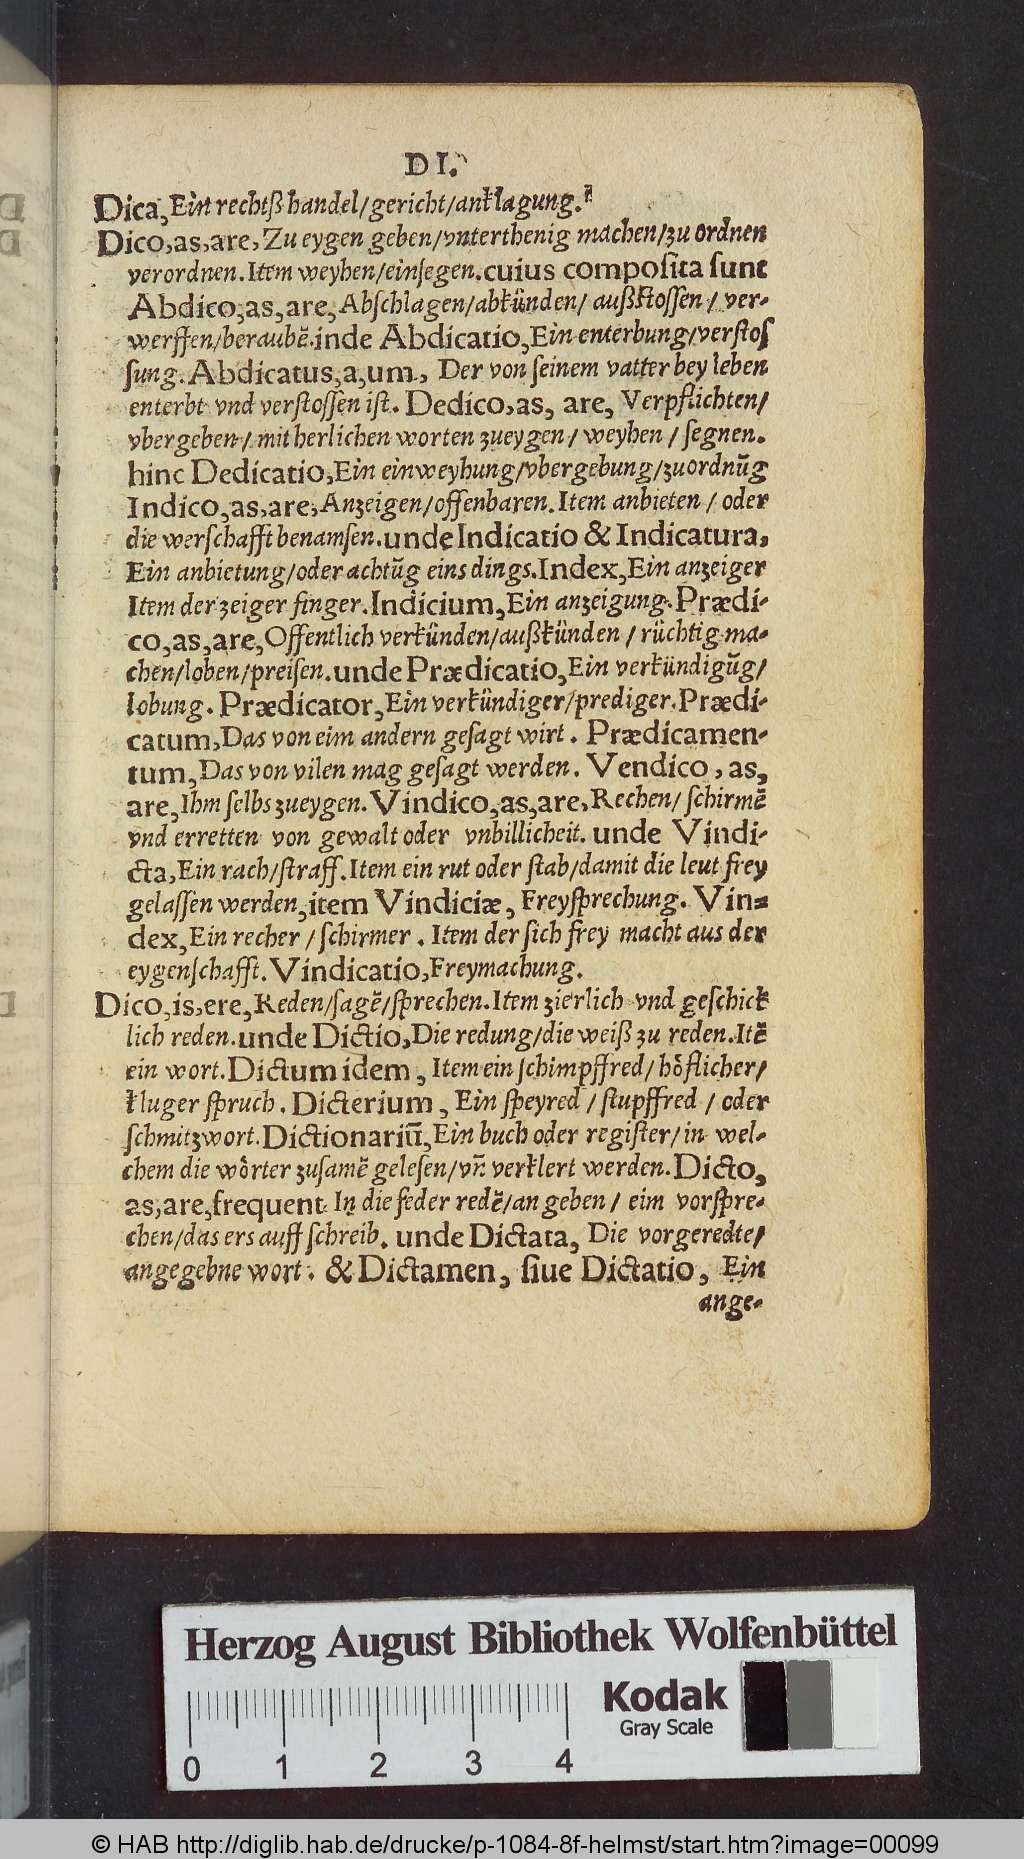 DI.
Dica, Ein rechtß handel/gericht/anklagung.
Dico, as, are, Zu eygen geben/vnterthenig machen/zu ordnen
verordnen. Item weyhen/einsegen. cuius composita sunt
Abdico, as, are, Abschlagen/abkünden/ außstossen/ ver-
werffen/beraubẽ. inde Abdicatio, Ein enterbung/verstos
sung. Abdicatus, a, um, Der von seinem vatter bey leben
enterbt vnd verstossen ist. Dedico, as, are, Verpflichten/
vbergeben/ mit herlichen worten zueygen/ weyhen/ segnen.
hinc Dedicatio, Ein einweyhung/vbergebung/zuordnũg
Indico, as, are, Anzeigen/offenbaren. Item anbieten/ oder
die werschafft benamsen. unde Indicatio & Indicatura,
Ein anbietung/oder achtũg eins dings. Index, Ein anzeiger
Item der zeiger finger. Indicium, Ein anzeigung. Prædi-
co, as, are, Offentlich verkünden/außkünden/ rüchtig ma-
chen/loben/preisen. unde Prædicatio, Ein verkündigũg/
lobung. Prædicator, Ein verkündiger/prediger. Prædi-
catum, Das von eim andern gesagt wirt. Prædicamen-
tum, Das von vilen mag gesagt werden. Vendico, as,
are, Ihm selbs zueygen. Vindico, as, are, Rechen/ schirmẽ
vnd erretten von gewalt oder vnbillicheit. unde Vindi-
cta, Ein rach/straff. Item ein rut oder stab/damit die leut frey
gelassen werden, item Vindiciæ, Freysprechung. Vin-
dex, Ein recher/ schirmer. Item der sich frey macht aus der
eygenschafft. Vindicatio, Freymachung.
Dico, is, ere, Reden/sagẽ/sprechen. Item zierlich vnd geschick
lich reden. unde Dictio, Die redung/die weiß zu reden. Itẽ
ein wort. Dictum idem, Item ein schimpffred/höflicher/
kluger spruch. Dicterium, Ein speyred/ stupffred/ oder
schmitzwort. Dictionariũ, Ein buch oder register/in wel-
chem die wörter zusamẽ gelesen/vñ verklert werden. Dicto,
as, are, frequent. In die feder redẽ/an geben/ eim vorspre-
chen/das ers auff schreib. unde Dictata, Die vorgeredte/
angegebne wort. & Dictamen, siue Dictatio, Ein
ange-
Herzog August Bibliothek Wolfenbüttel
Kodak
Gray Scale
0 1 2 3 4
© HAB http://diglib.hab.de/drucke/p-1084-8f-helmst/start.htm?image=00099